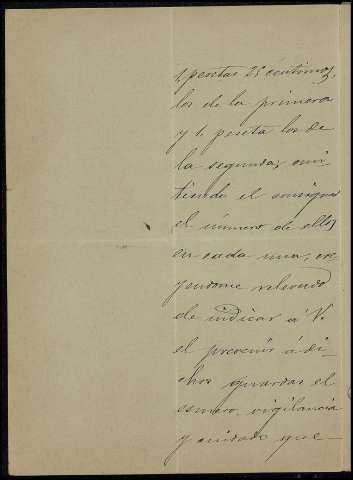 1, pesetas 25 centimos,
los de la primera
y 1 peseta los de
la segunda; omi-
tiendo el consignar
el número de ellos
en cada una, cre-
yendome relevado
de indicar á V.
el prevenir á di-
chos guardas el
esmero, vigilancia
y cuidado que